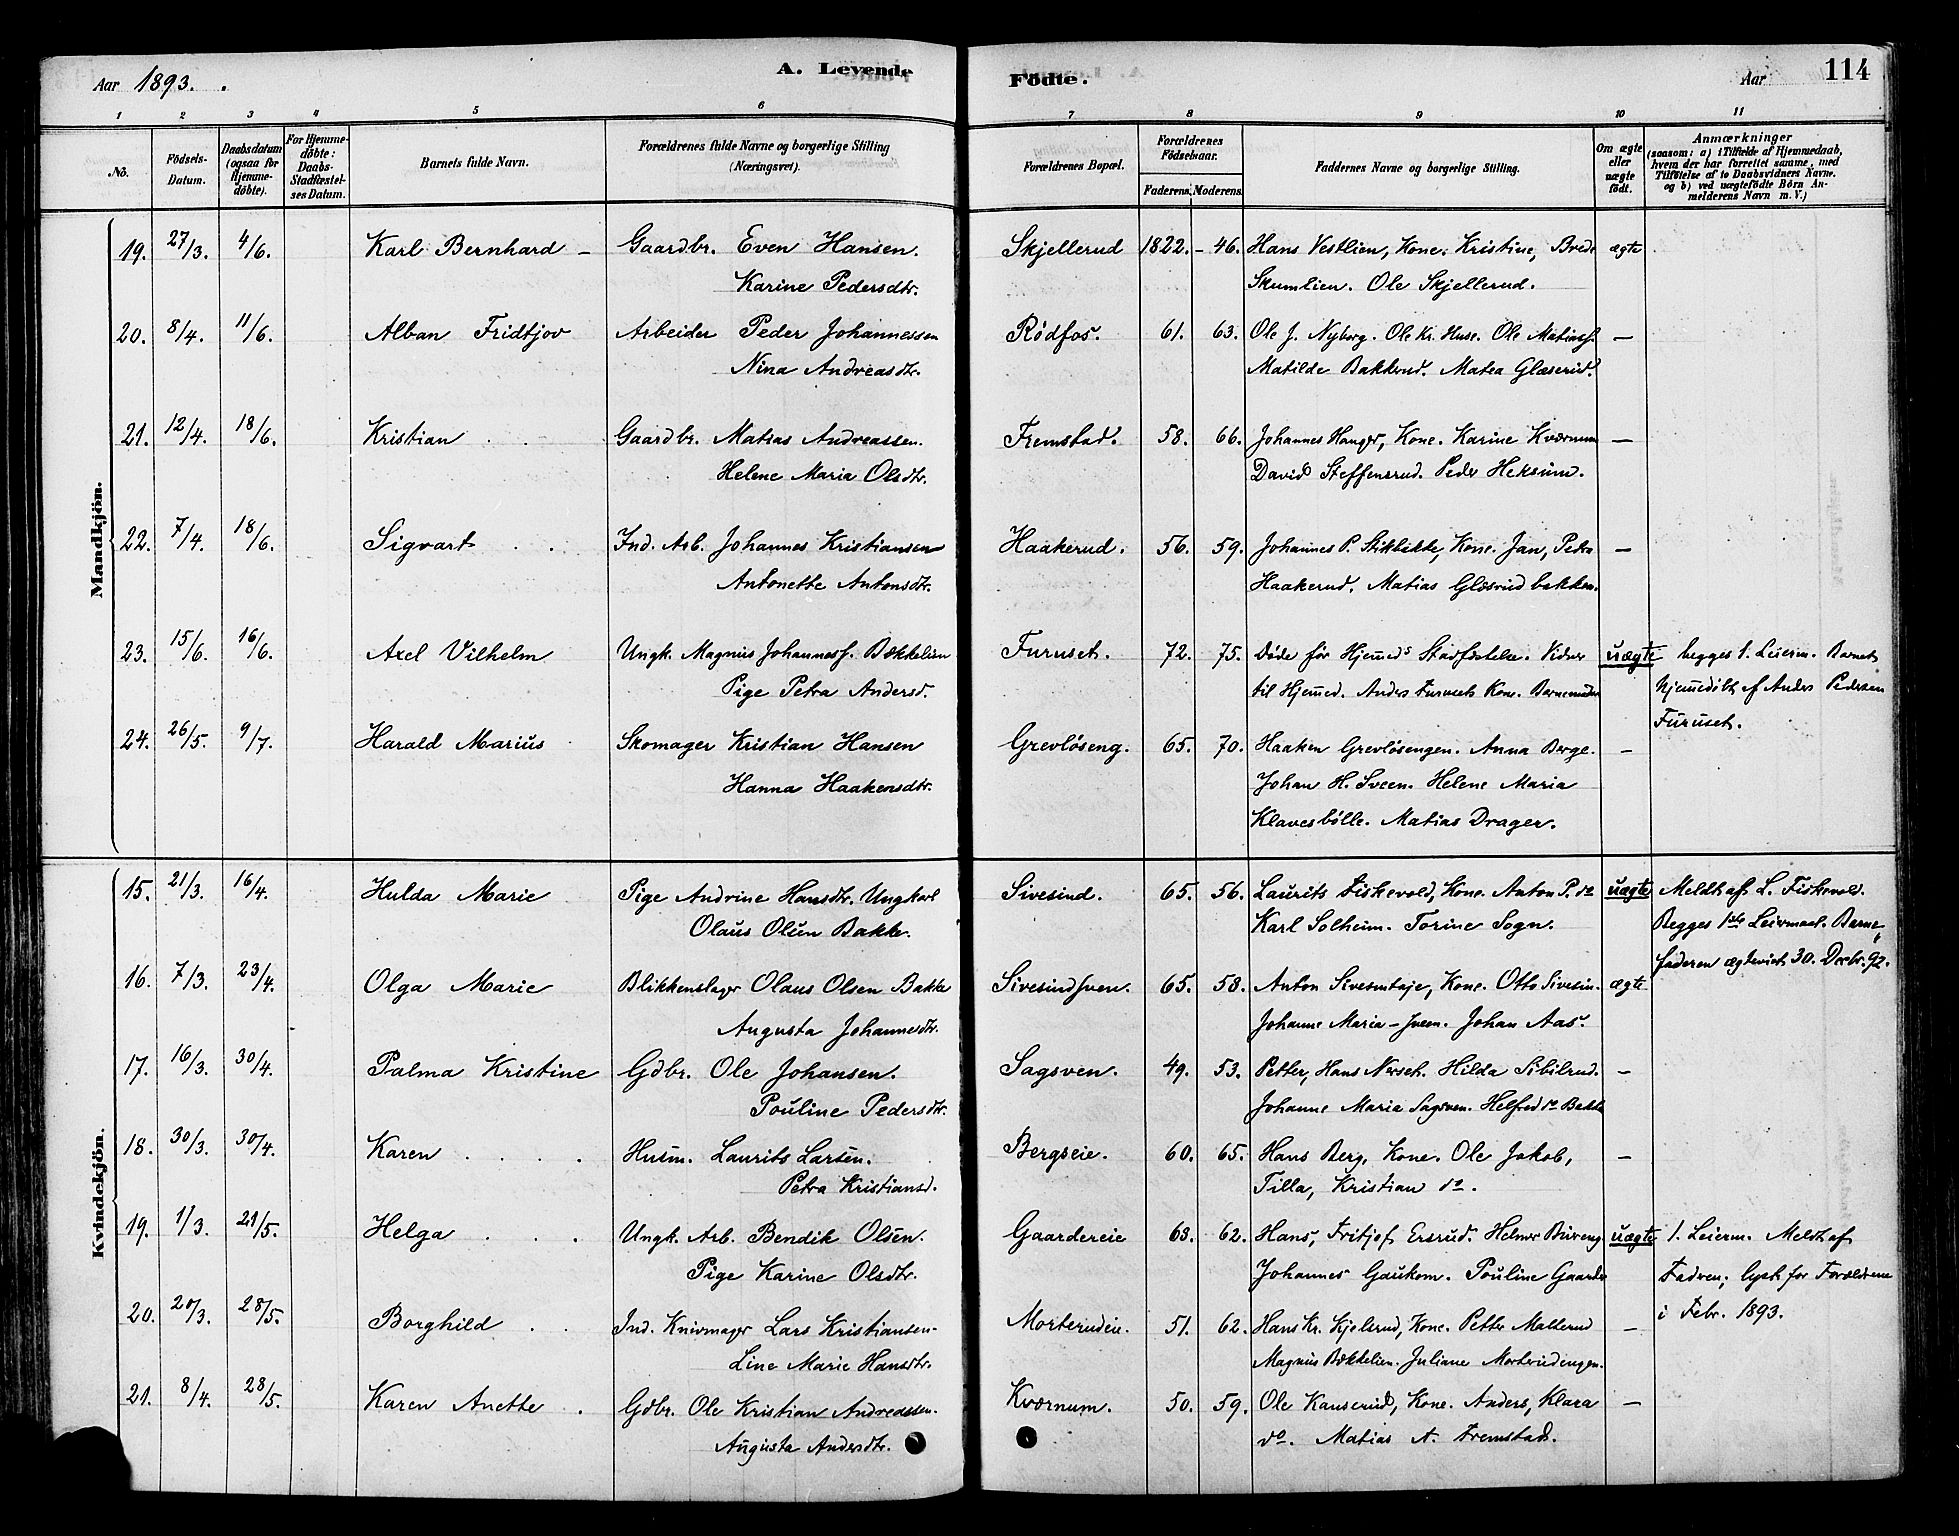 Aar 1893.
A. Levende
Födte.
Aar
114
1 2 3 4 5 6 7 8 9 10 11
No.
Födsels-Datum.
Daabsdatum (ogsaa for Hjemme-döbte).
For Hjemme-döbte: Daabs-Stadfæstel-ses Datum.
Barnets fulde Navn.
Forældrenes fulde Navne og borgerlige Stilling (Næringsvei).
Forældrenes Bopæl.
Forældrenes Födselsaar.
Faderens. Moderens.
Faddernes Navne og borgerlige Stilling.
Om ægte eller uægte födt.
Anmærkninger
(saasom: a) i Tilfælde af Hjemmedaab,
hvem der har forrettet samme, med
Tilföielse af to Daabsvidners Navne.
og b) ved uægtefödte Börn An-
melderens Navn m. V.)
Mandkjön.
19. 27/3. 4/6. Karl Bernhard – Gaardbr. Even Hansen. Skjellerud 1822. – 46. Hans Vestlien, Kone. Kristine, Brede ægte
Karine Pedersdtr. Skumlien. Ole Skjellerud.
20. 8/4. 11/6. Alban Fridtjov Arbeider Peder Johannessen Rødfos. 61. 63. Ole J. Nyborg. Ole Kr. Huse. Ole Matiass. —
Nina Andreasdtr. Matilde Bakkerud. Matea Glæserud.
21. 12/4. 18/6. Kristian Gaardbr. Matias Andreassen. Fremstad. 58. 66. Johannes Hanger, Kone. Karine Kværnum —
Helene Maria Olsdtr. David Steffensrud. Peder Heksum.
22. 7/4. 18/6. Sigvart Ind. Arb. Johannes Kristiansen Haakerud. 56. 59. Johannes P. Stikbakke, Kone. Jan, Petra —
Antonette Antonsdtr. Haakerud. Matias Glæsrudbakken.
23. 15/6. 16/6. Axel Vilhelm Ungk. Magnus Johanness. Bækkelien Furuset. 72. 75. Døde før Hjemmeds Stadfæstelse. Vidner uægte begges 1. Leierm. Barnet
Pige Petra Andersd. til Hjemmed. Anders Furusets Kone. Barnemoder Hjemmedøbt af Anders Pedersen
Furuset.
24. 26/5. 9/7. Harald Marius Skomager Kristian Hansen Grevløseng. 65. 70. Haaken Grevløsengen. Anna Berge. —
Hanna Haakensdtr. Johan H. Sveen. Helene Maria
Klavesbölle. Matias Drager.
Kvindekjön.
15. 21/3. 16/4. Hulda Marie Pige Andrine Hansdtr. Ungkarl Sivesind. 65. 56. Laurits Fiskevold, Kone. Anton P. do uægte Meldt af L. Fiskevold.
Olaus Olsen Bakke. Karl Solheim. Torine Sogn. Begges 1ste Leiermaal. Barne-
faderen ægteviet 30. Decbr. 92.
16. 7/3. 23/4. Olga Marie Blikkenslager Olaus Olsen Bakke Sivesindsven. 65. 58. Anton Sivesindeje, Kone. Otto Sivesin. ægte
Augusta Johannesdtr. Johanne Maria – Sveen. Johan Aas.
17. 16/3. 30/4. Palma Kristine Gdbr. Ole Johansen. Sagsven. 49. 53. Petter, Hans Nerset. Hilda Sibilrud. —
Pouline Pedersdtr. Johanne Maria Sagsven. Helfred do Bakke
18. 30/3. 30/4. Karen Husm. Laurits Larsen. Bergseie. 60. 65. Hans Berg, Kone. Ole Jakob, —
Petra Kristiansd. Tilla, Kristian do.
19. 1/3. 21/5. Helga Ungk. Arb. Bendik Olsen. Gaardereie 63. 62. Hans, Fritjof Ersrud. Helmer uægte 1. Leierm. Meldt af
Pige Karine Olsdtr. Johannes Gaukom. Pouline Gaarder Fadren; lyst for Forældrene
i Febr. 1893.
20. 20/3. 28/5. Borghild Ind. Knivmager Lars Kristiansen. Morterudeie. 51. 62. Hans Kr. Kjelsrud, Kone. Petter Malterud —
Line Marie Hansdtr. Magnus Bækkelien. Juliane Morterudengen.
21. 8/4. 28/5. Karen Anette Gdbr. Ole Kristian Andreassen. Kværnum. 50. 59. Ole Kanserud, Kone. Anders, Klara —
Augusta Andersdtr. do. Matias A. Fremstad.